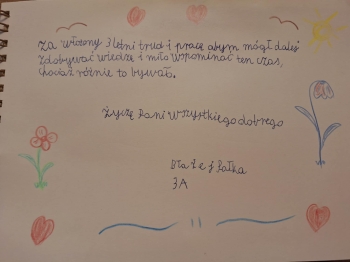 Za włożony 3 letni trud i pracę abym mógł dalej
zdobywać wiedzę i miło wspominać ten czas,
chodź różnie to bywało.
Życzę Pani wszystkiego dobrego
Błażej Białka
3A